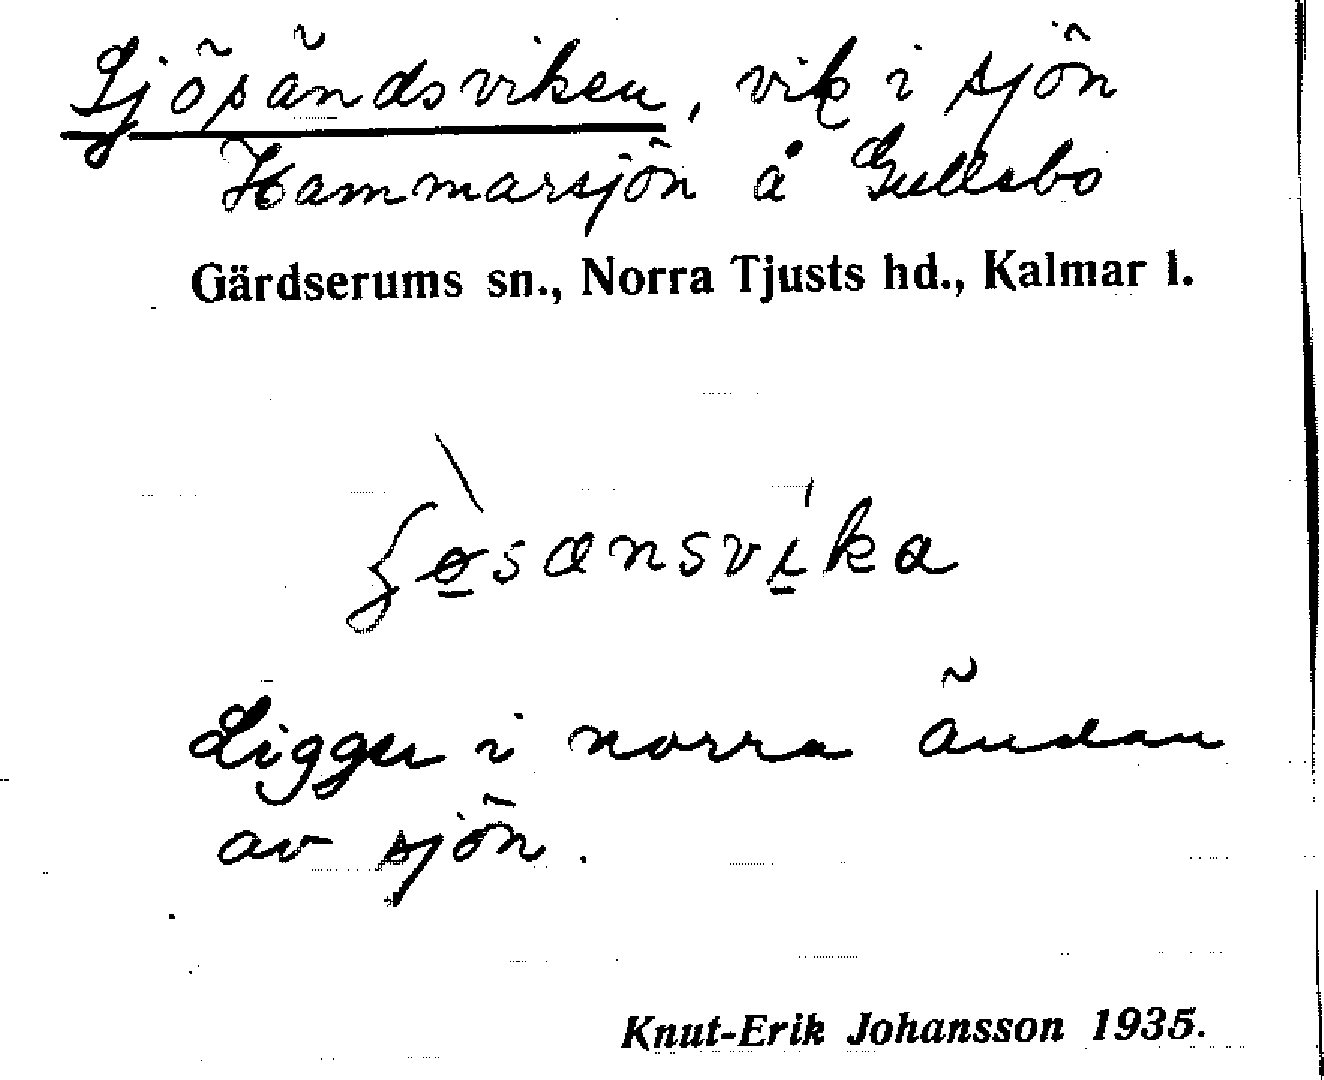 Sjösändsviken, vik i sjön
Hammarsjön å Gullebo
Gärdserums sn., Norra Tjusts hd., Kalmar l.
Ligger i norra ändan
av sjön.
Knut-Erik Johansson 1935.